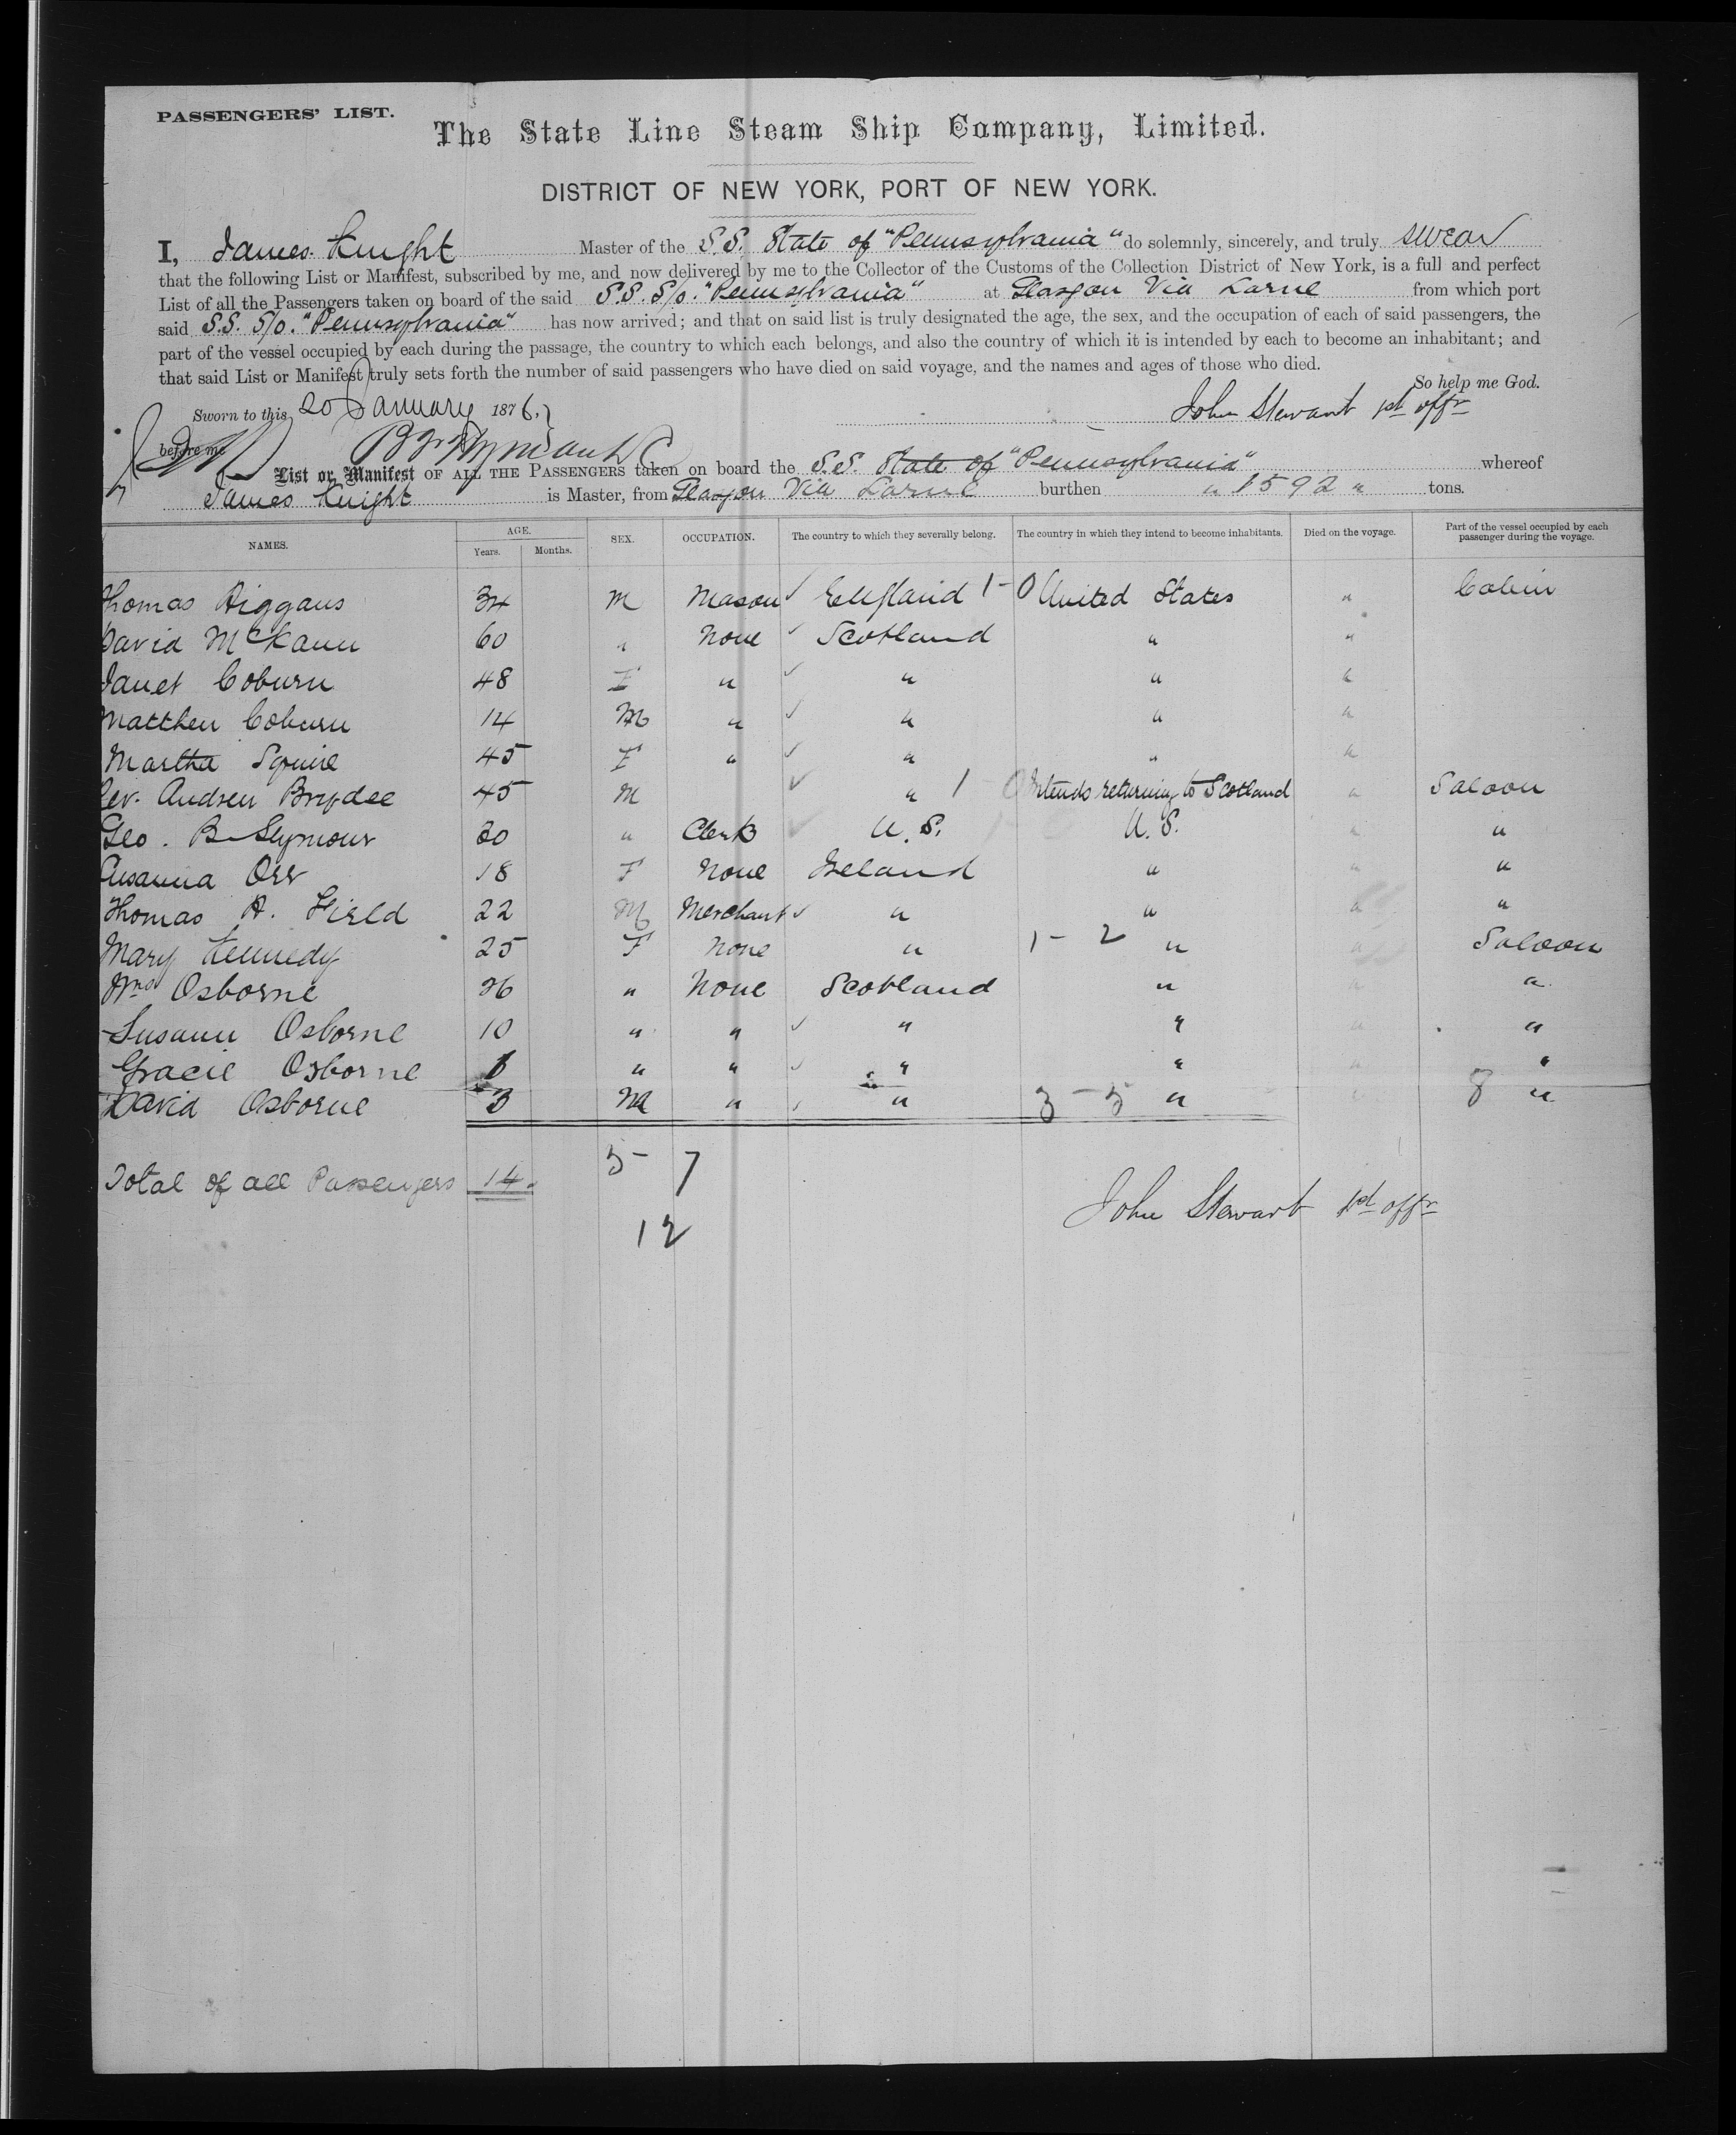 PASSENGERS' LIST.
The State Line Steam Ship Company, Limited.
DISTRICT OF NEW YORK, PORT OF NEW YORK.
I, James Knight Master of the S.S. State of "Pennsylvania" do solemnly, sincerely, and truly swear
that the following List or Manifest, subscribed by me, and now delivered by me to the Collector of the Customs of the Collection District of New York, is a full and perfect
List of all the Passengers taken on board of the said S.S. S/o. "Pennsylvania" at Glasgow Via Larne from which port
said S.S. S/o. "Pennsylvania" has now arrived; and that on said list is truly designated the age, the sex, and the occupation of each of said passengers, the
part of the vessel occupied by each during the passage, the country to which each belongs, and also the country of which it is intended by each to become an inhabitant; and
that said List or Manifest truly sets forth the number of said passengers who have died on said voyage, and the names and ages of those who died.
So help me God.
Sworn to this 20 January 1876. John Stewart 1st offr
before me
List or Manifest OF ALL THE PASSENGERS taken on board the S.S. State of "Pennsylvania" whereof
James Knight is Master, from Glasgow Via Larne burthen " 1592 " tons.
NAMES. AGE. Years. Months. SEX. OCCUPATION. The country to which they severally belong. The country in which they intend to become inhabitants. Died on the voyage. Part of the vessel occupied by each passenger during the voyage.
Thomas Higgans 34 M Mason England 1-0 United States " Cabin
David McKann 60 " None Scotland " "
Janet Coburn 48 F " " " "
Matthew Coburn 14 M " " " "
Martha Squire 45 F " " " "
Rev. Andrew Brydee 45 M " 1 - 0 Intends returning to Scotland " Saloon
Geo. B Seymour 20 " Clerk U.S. U.S. " "
Susanna Orr 18 F None Ireland " " "
Thomas A. Field 22 M Merchant " " " "
Mary Kennedy 25 F None " 1-2 " " Saloon
Mrs Osborne 36 " None Scotland " " "
Susann Osborne 10 " " " " " "
Gracie Osborne " " " " " "
David Osborne 3 M " " 3-5 " " 8 "
5-7
Total of all Passengers 14.
John Stewart 1st offr
12